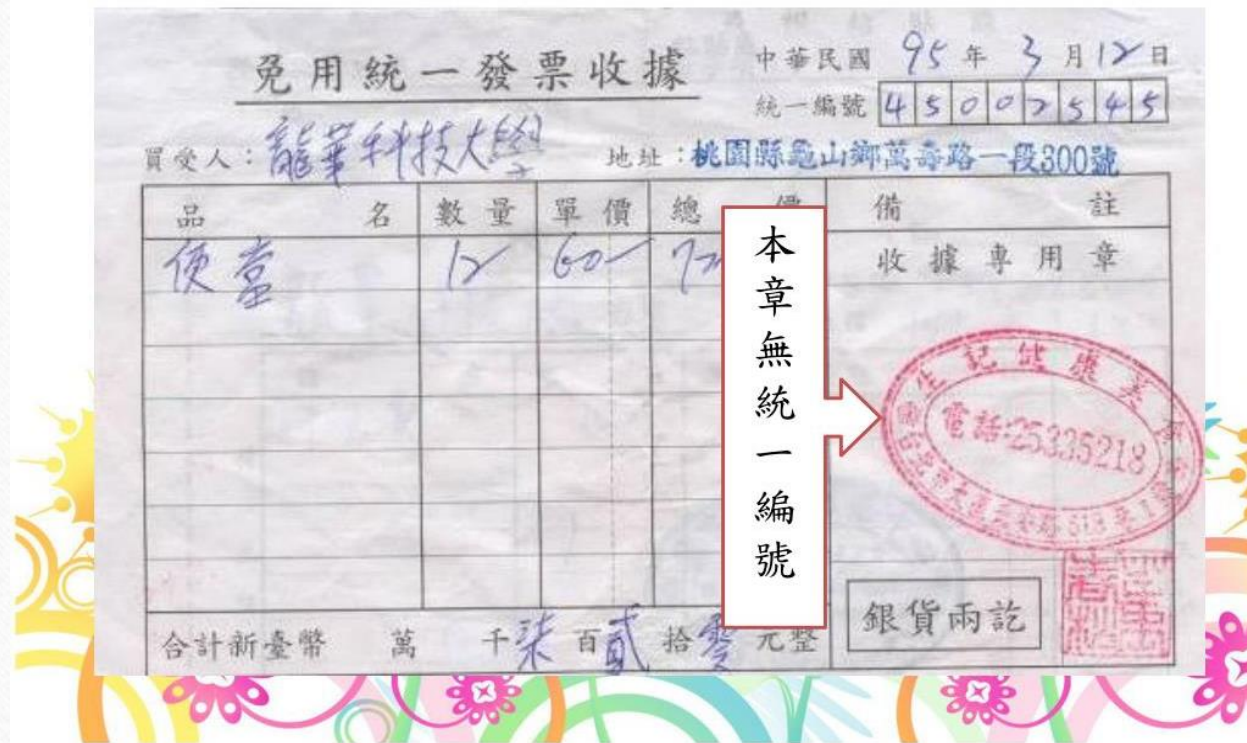 免用統一發票收據
中華民國 95 年 3 月 12 日
統一編號 45002545
買受人：龍華科技大學
地址：桃園縣龜山鄉萬壽路一段300號
品名 數量 單價 總價 備註
便當 12 60
收據專用章
本章無統一編號
電話:25335218
銀貨兩訖
合計新臺幣 萬 千 柒 百 貳 拾 零 元整